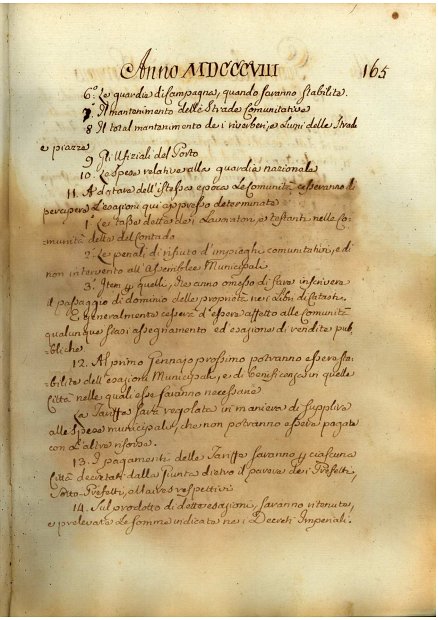 Anno MDCCCVIII 165
6.° Le guardie di Campagna, quando saranno stabilite.
7.° Il mantenimento delle Strade Comunitative
8 Il total mantenimento dei riverberi, e Lumi delle Strade
e piazze
9 Gli Ufiziali del Porto
10. Le spese relative alla guardia nazionale
11. A datare dall'istessa epoca Le Comunità cesseranno di
percipere L'esazioni qui appresso determinate
1.° Le tasse dette dei Lavoratori, e testanti nelle Co-
munità della del Contado
2.° Le penali di rifiuto d'impieghi comunitativi, e di
non intervento all'Assemblee Municipali
3. Item quelle, che anno omesso di fare inscrivere
il passaggio di dominio delle proprietà nei Libri di Catasto.
E generalmente cesserà d'essere affetto alle Comunità
qualunque siasi assegnamento ed esazione di vendite pub-
bliche
12. Al primo Gennajo prossimo potranno essere sta-
bilite dell'esazioni Municipali, e di beneficenza in quelle
Città nelle quali esse saranno necessarie
La Tariffa sarà regolata in maniera di supplire
alle Spese municipali, che non potranno essere pagate
con L'altre risorse.
13. I pagamenti delle Tariffe saranno p ciascuna
Città decretati dalla Giunta dietro il parere dei Prefetti,
Sotto-Prefetti, e Maires respettivi
14. Sul prodotto di dette esazioni, saranno ritenute,
e prelevate Le somme indicate nei Decreti Imperiali.